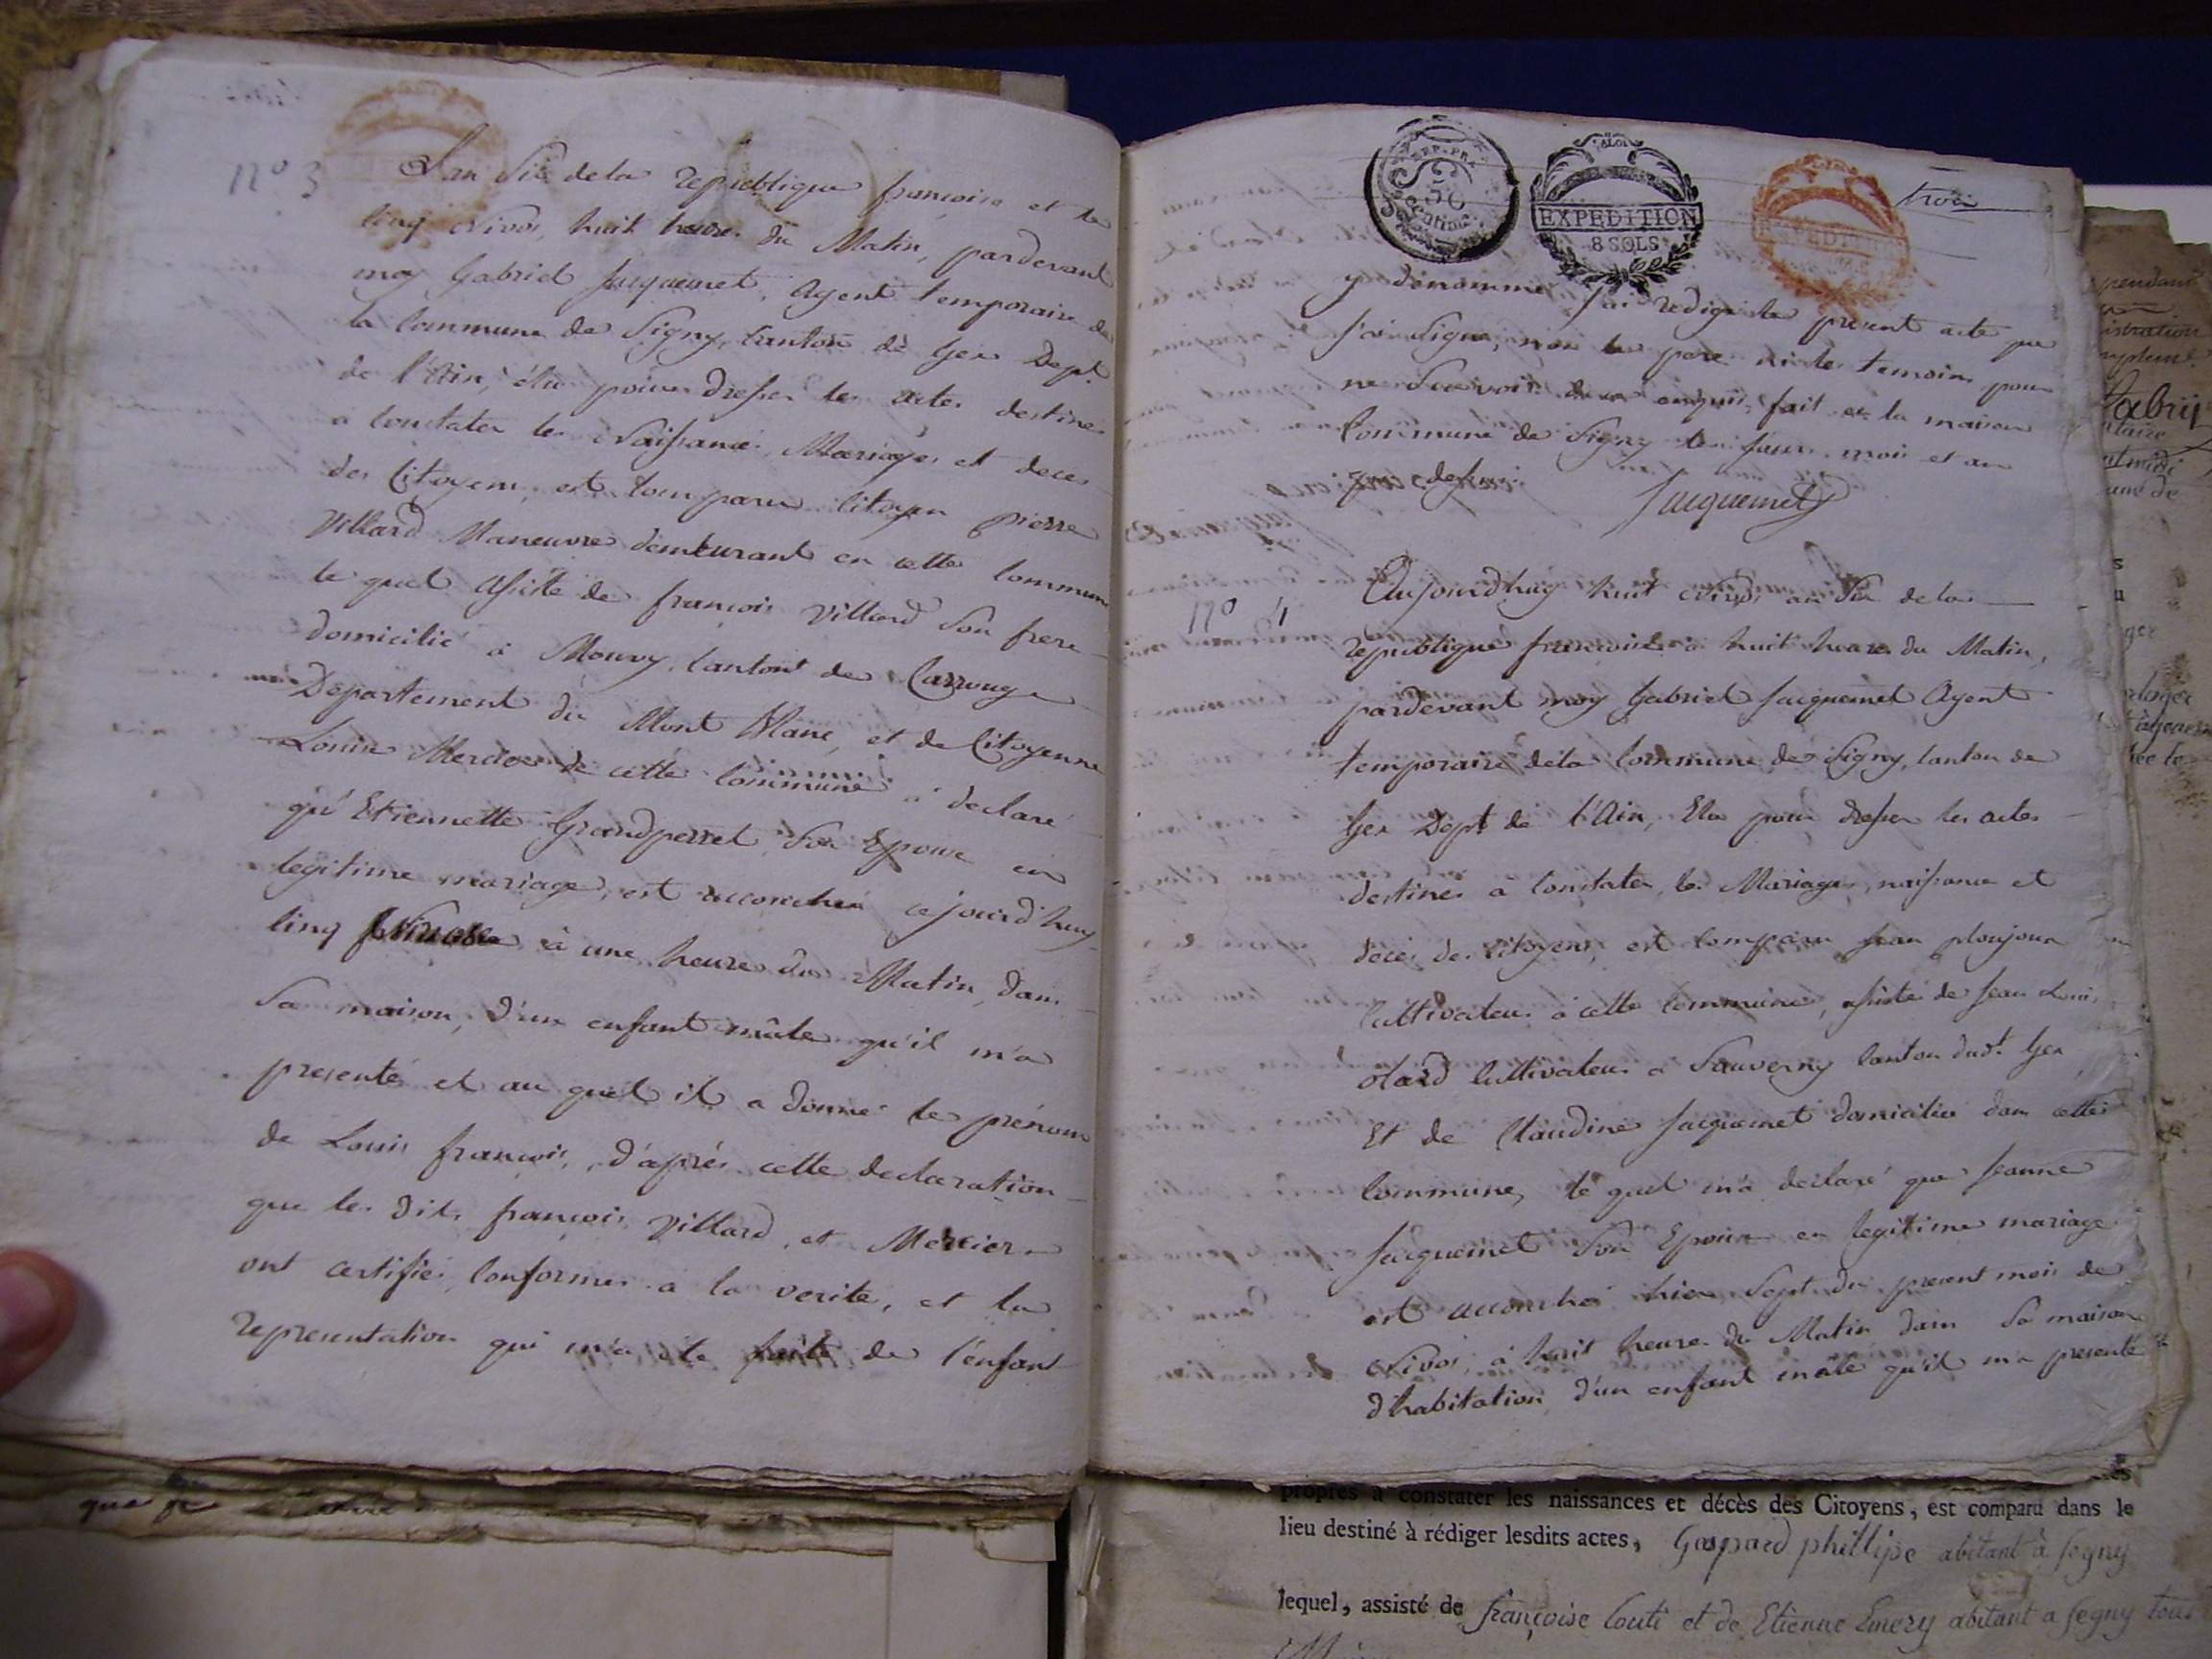 N° 3
L'an Six de la Republique francoise et le
cinq Nivos, huit heures du Matin, pardevant
moy Gabriel Jacquemet, Agent temporaire de
la Commune de Segny, Canton de Gex Dept.
de l'Ain, élu pour dresser les actes destines
a Constater les Naissances, Mariages et deces
des Citoyens, est Comparu Citoyen pierre
Villard Maneuvre demeurant en cette Commune
le quel Assisté de francois Villard Son frere
domicilié a Mouvy, Canton de Carrouge
Departement du Mont Blanc, et de Citoyenne
Louise Mercier de cette Commune a declaré
qu'Etiennette Grandperret Son Epouse en
legitime mariage, est accouchée cejourd'huy
cinq à une heure du Matin, dans
Sa maison, d'un enfant mâle qu'il m'a
presenté et au quel il a donné le prénom
de Louis francois, d'après cette declaration
que les dits francois Villard, et Mercier
ont certifiés Conformes a la verité, et la
representation qui m'a eté faite de l'enfant
REP. FRA.
50
Centime
LA LOI
EXPEDITION
8 SOLS
EXPEDITION
trois
y dénommé J'ai redigé le present acte que
J'ai Signé, non le pere ni les temoins pour
ne Sçavoir de ce enquis, fait en la maison
Commune de Segny les jour, mois et an
que dessus.
Jacquemet
N° 4
Aujourdhuy huit Nivos an Six de la
republique francoise a huit heures du Matin,
pardevant moy Gabriel Jacquemet Agent
temporaire de la Commune de Segny, Canton de
Gex Dept de l'Ain, Elu pour dresser les actes
destines a Constater les Mariages, naissance et
deces des Citoyens, est Comparu Jean ploujoux
Cultivateur à cette Commune, assisté de Jean Louis
olard Cultivateur a Sauverny Canton dudt. Gex
Et de Claudine Jacquemet domiciliée dans cette
Commune, le quel m'a declaré que Jeanne
Jacquemet Son Epouse en legitime mariage
est accouchée hier Sept du present mois de
Nivos, à huit heures du Matin dans Sa maison
d'habitation, d'un enfant mâle qu'il m'a presenté et
propres à constater les naissances et décès des Citoyens, est comparu dans le
lieu destiné à rédiger lesdits actes, Gaspard phillipe abitant à Segny
lequel, assisté de françoise Couti et de Etienne Emery abitant a segny tous